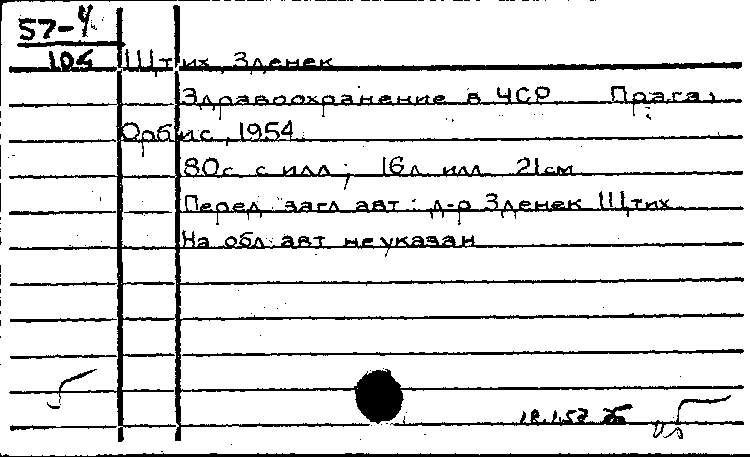 57-4
Штих, Зденек
Здравоохранение в ЧСР Прага,
Орбис, 1954.
80с. с илл; 16л. илл 21см
Перед загл авт: д-р Зденек Штих
На обл. авт не указан